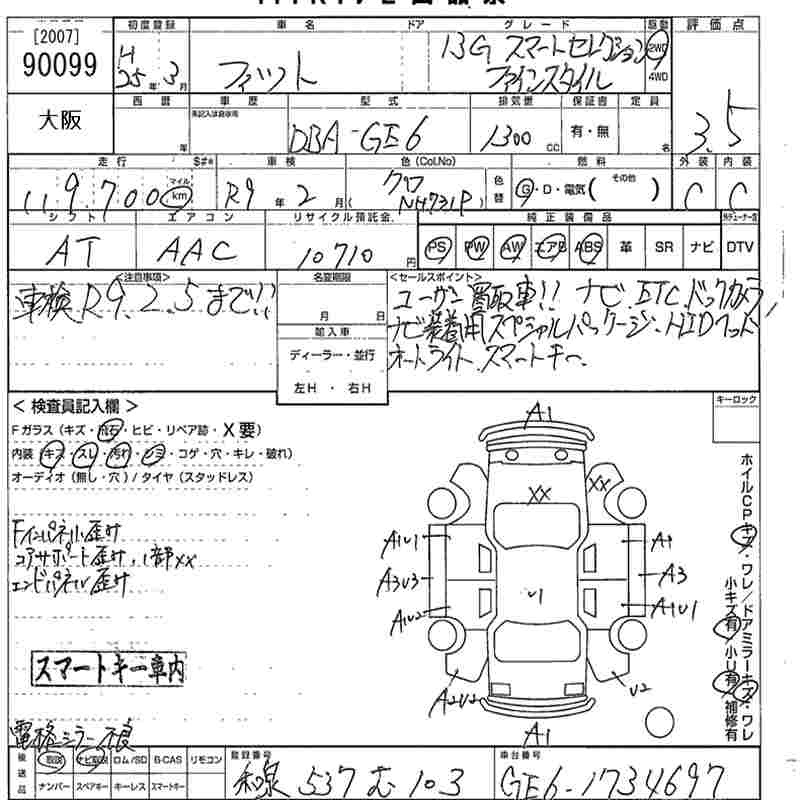 [2007]
90099
大阪
初度登録
H
25年 3月
車名
ドア
グレード
フィット
13G スマートセレクション
ファインスタイル
駆動
2WD
4WD
評価点
3.5
西暦
年
車歴
未記入は自家用
型式
DBA-GE6
排気量
1300 CC
保証書
有・無
定員
名
走行
119,700
マイル
km
S#*
車検
R9年 2月
色(Col.No)
クロ
( NH731P )
色替
燃料
G・D・電気( その他 )
外装
C
内装
C
シフト
AT
エアコン
AAC
リサイクル預託金
10710 円
純正装備品
PS PW AW エアB ABS 革 SR ナビ DTV
<注意事項>
車検R9.2.5まで!!
名変期限
月 日
輸入車
ディーラー・並行
左H ・ 右H
<セールスポイント>
ユーザー買取車!! ナビ.ETC.ドックカメラ/
ナビ装着用スペシャルパッケージ・HIDヘッド
オートライト.スマートキー.
キーロック
< 検査員記入欄 >
Fガラス (キズ・飛石・ヒビ・リペア跡・X要)
内装 (キズ・スレ・汚れ・シミ・コゲ・穴・キレ・破れ)
オーディオ (無し・穴) / タイヤ (スタッドレス)
Fインパネル歪サ
コアサポート歪サ,1部XX
エンドパネル歪サ
スマートキー車内
電格ミラー不良
A1
XX
XX
A1U1
A1
A3U3
A3
U1
A1U2
A1U1
A2U2
U2
A1
ホイルCPキズ・ワレ/ドアミラーキズ・ワレ
小キズ有/小U有/補修有
後送品
取説 ナビ取説 ロム/SD B-CAS リモコン
ナンバー スペアキー キーレス スマートキー
登録番号
和泉 537 む 103
車台番号
GE6-1734697